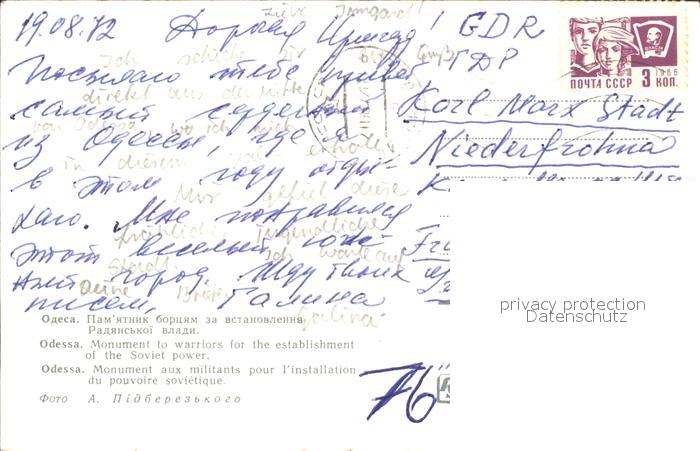 19.08.72 Дорогая Ирмгард!
Liebe Irmgard!
Посылаю тебе привет
Ich schicke dir Gruß
самый сердечный
direkt aus der Mitte
из Одессы, где я
von Odessa, wo ich mich
в этом году отды-
in diesem Jahr erhole.
хаю. Мне понравился
Mir gefiel diese
этот веселый, юно-
fröhliche, jugendliche
город. Жду твоих
Stadt. Ich warte auf
писем, Галина
deine Briefe
Galina
GDR
ГДР
Karl Marx Stadt
Niederfrohna
1966
ВЛКСМ
ПОЧТА СССР 3 КОП.
privacy protection
Datenschutz
Одеса. Пам'ятник борцям за встановлення
Радянської влади.
Odessa. Monument to warriors for the establishment
of the Soviet power.
Odessa. Monument aux militants pour l'installation
du pouvoire soviétique.
Фото А. Підберезького